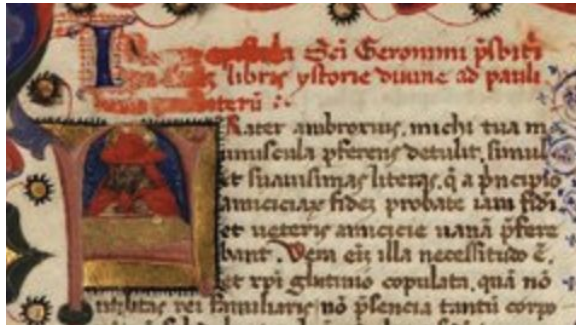 I Sci Geronimi p̃sbitĩ
libris ystorie diuine ad pauli
terũ :~
Rater ambrosius. michi tua m
unuscula p̃ferens detulit. simul
et suauisimas literas. q̃ a p̃ncipio
amiciciax fidei probate iam fidi
et ueteris amicicie uanã p̃fere
bant. Vera eĩz illa necessitudo ẽ.
et xp̃i glutinio copulata. quã nõ
utilitas rei familiaris nõ p̃sencia tantũ corp